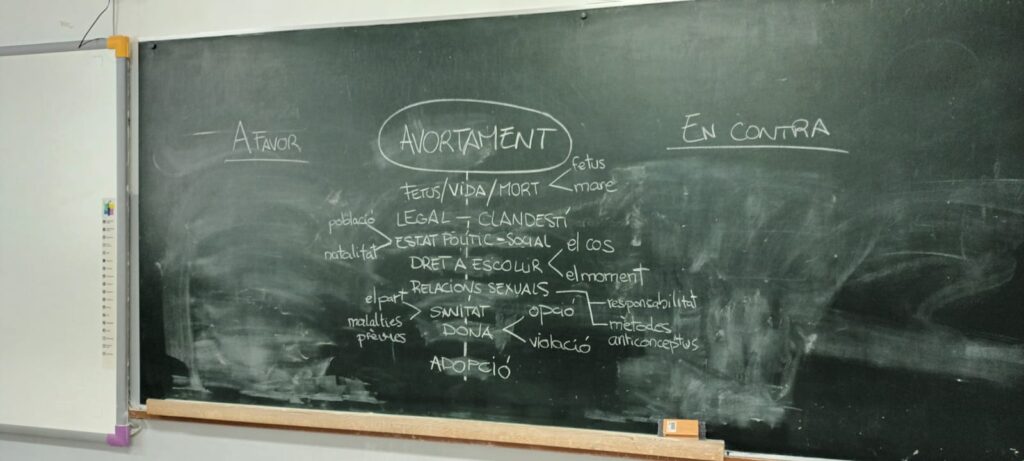 A FAVOR
AVORTAMENT
EN CONTRA
FETUS/VIDA/MORT
fetus
mare
LEGAL - CLANDESTÍ
població
natalitat
ESTAT POLÍTIC - SOCIAL
DRET A ESCOLLIR
el cos
el moment
RELACIONS SEXUALS
responsabilitat
mètodes
anticonceptius
el part
malalties
prèvies
SANITAT
DONA
opció
violació
ADOPCIÓ